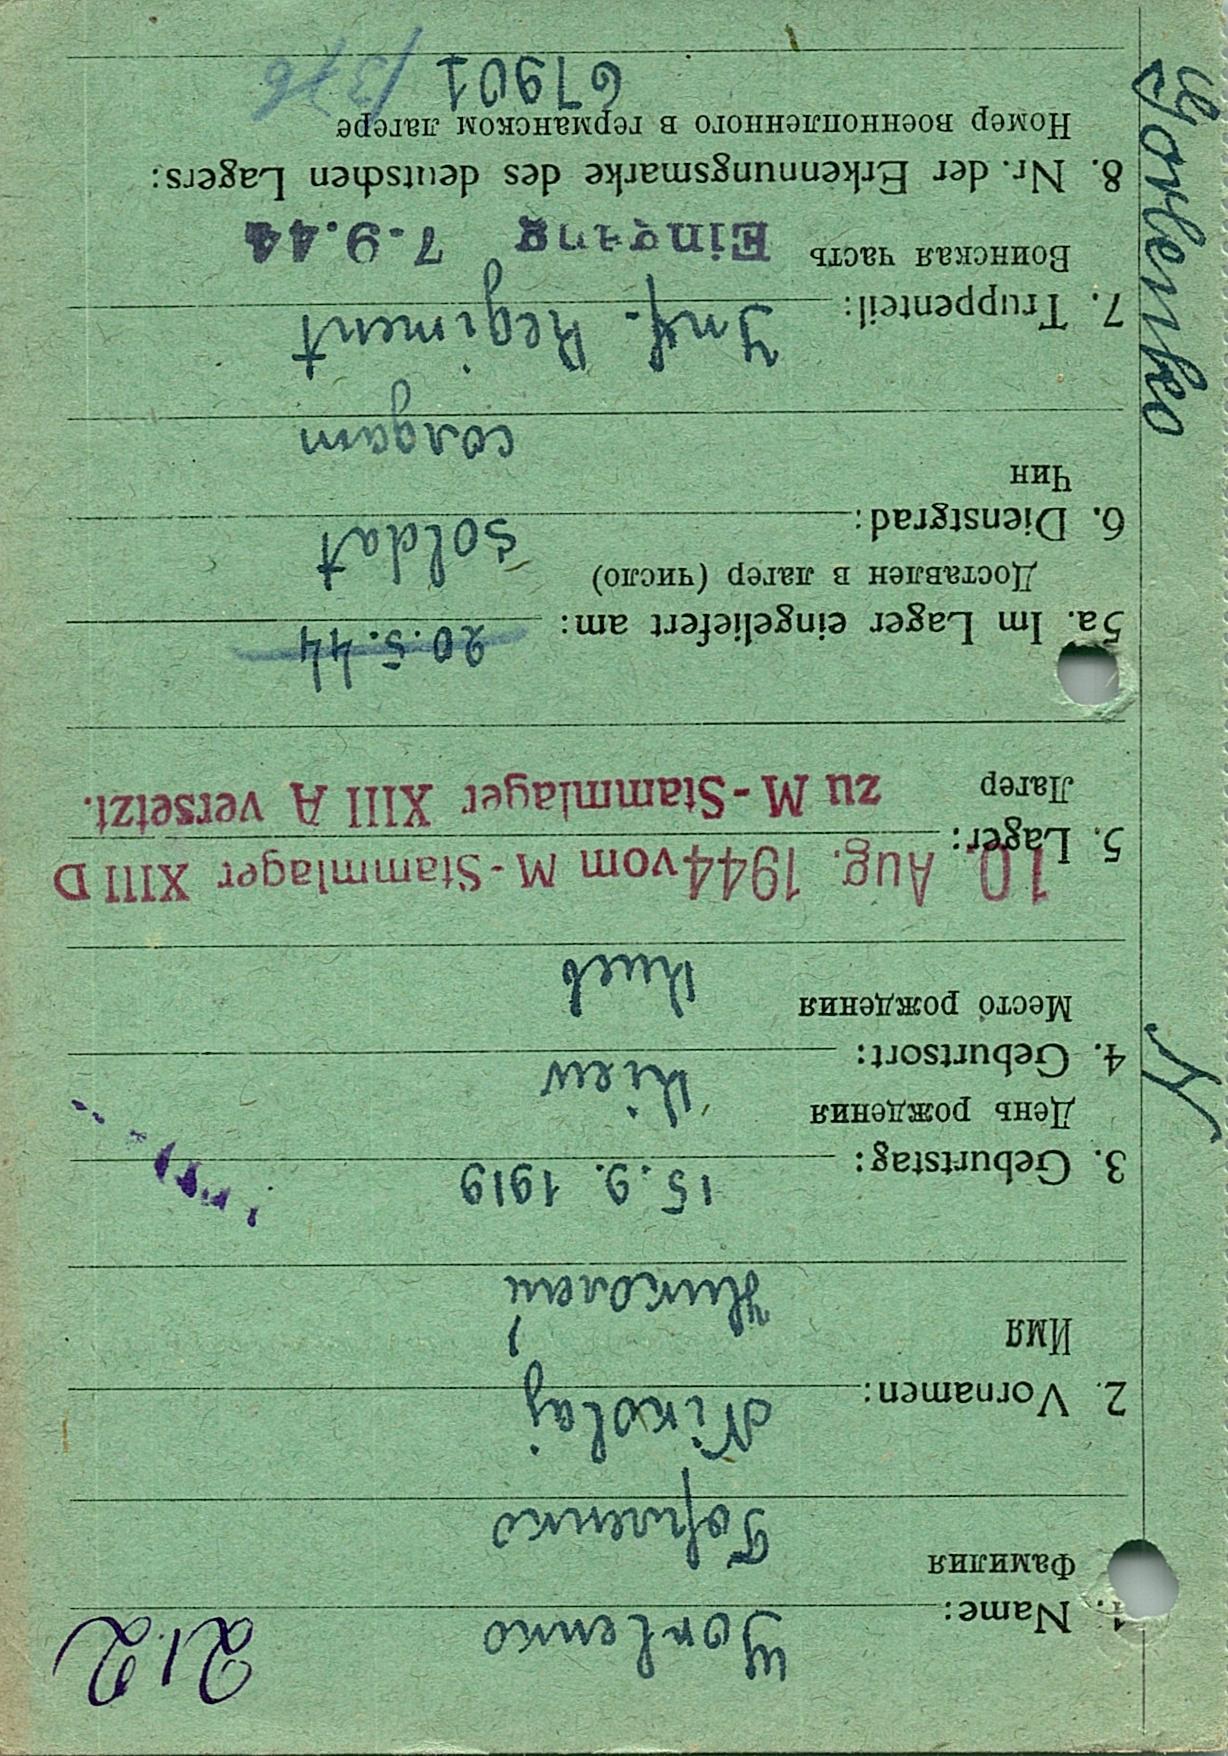 212
1. Name: Gorlenko
Фамилия Горленко
2. Vornamen: Nikolaj
Имя Николай
3. Geburtstag: 15. 9. 1919
День рождения
4. Geburtsort: Kiew
Место рождения Киев
10. Aug. 1944 vom M-Stammlager XIII D
5. Lager:
Лагер zu M-Stammlager XIII A versetzt.
5a. Im Lager eingeliefert am: 20.5.44
Доставлен в лагер (число)
6. Dienstgrad: Soldat
Чин солдат
7. Truppenteil: Inf. Regiment
Воинская часть Eingang 7.9.44
8. Nr. der Erkennungsmarke des deutschen Lagers:
Номер военнопленного в германском лагере
61901
Gorlenko
K